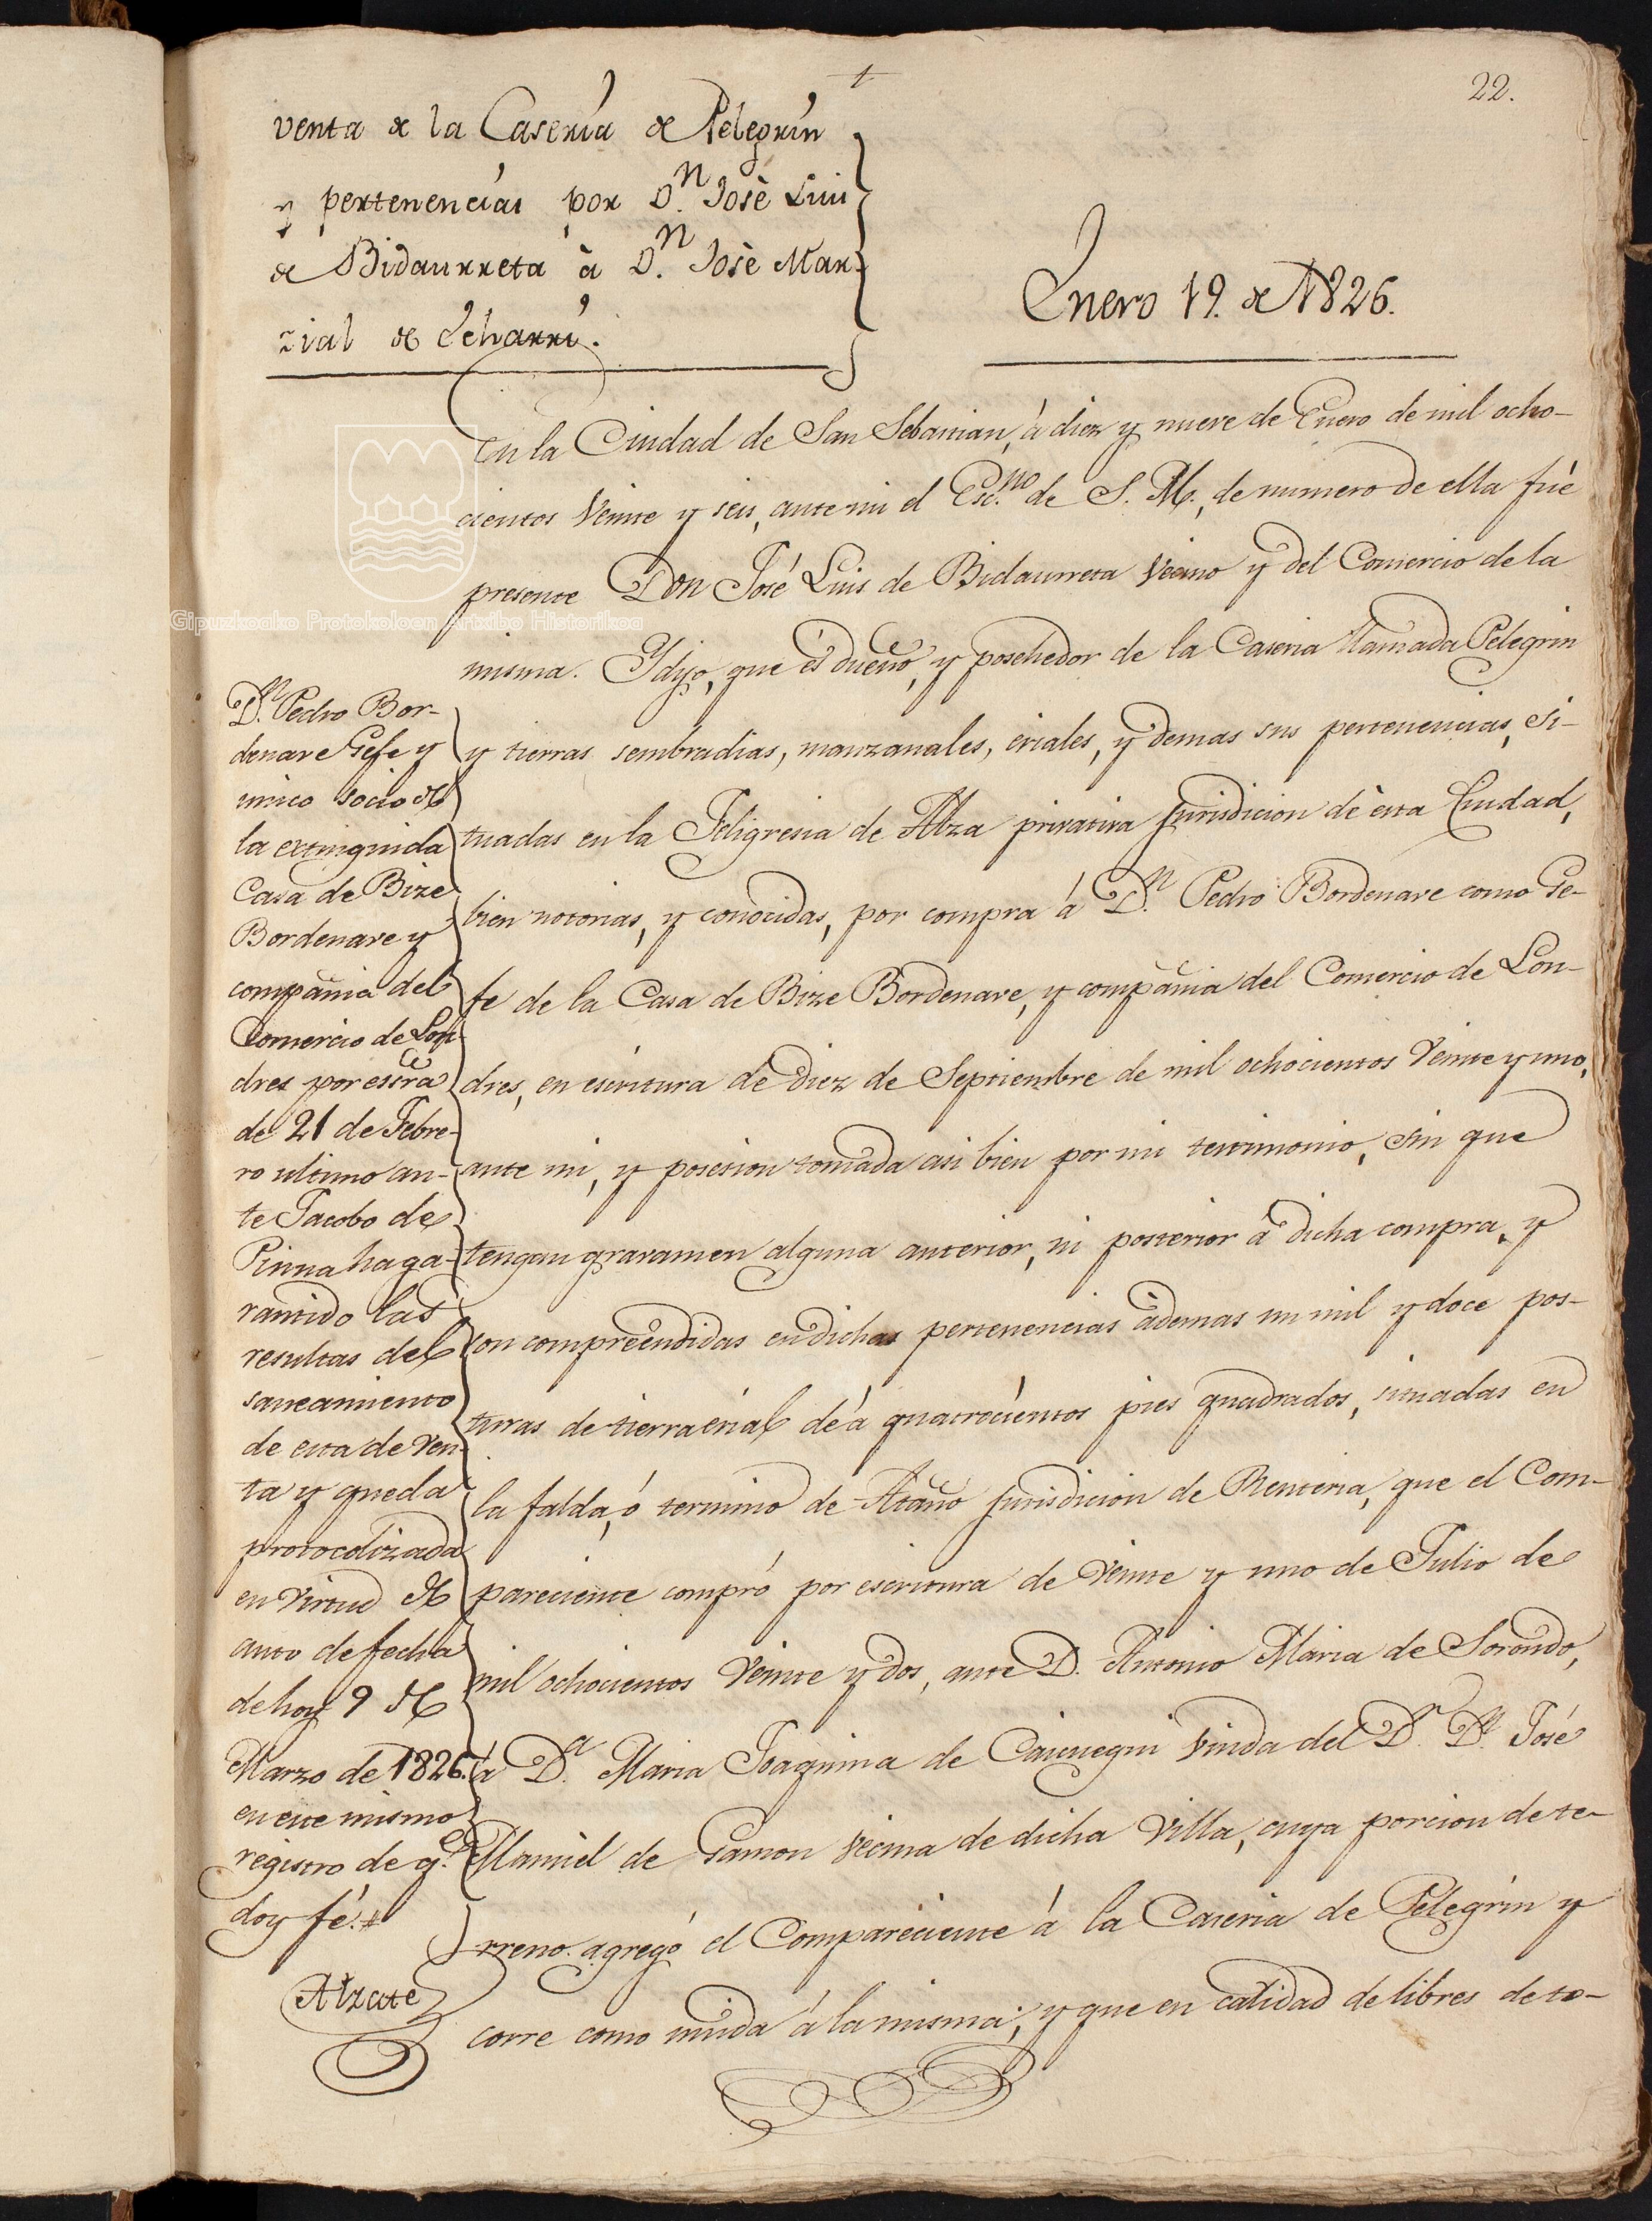 22.
venta de la Casería de Pelegrín
y pertenencias por D.n José Luis
de Bidaurreta à D.n José Mar-
zial de Echarri.
Enero 19. de 1826.
En la Ciudad de San Sebastian, à diez y nueve de Enero de mil ocho-
cientos Veinte y seis, ante mi el Esc.no de S. M., de numero de ella fué
presente Don José Luis de Bidaurreta Vecino y del Comercio de la
misma. Y dijo, que és dueño, y posehedor de la Caseria llamada Pelegrin
y tierras sembradias, manzanales, eriales, y demas sus pertenencias, si-
tuadas en la Feligresia de Alza privativa Jurisdicion de ésta Ciudad,
bien notorias, y conocidas, por compra á D.n Pedro Bordenave como Ge-
fe de la Casa de Bize Bordenave, y compañia del Comercio de Lon-
dres, en escritura de diez de Septiembre de mil ochocientos Veinte y uno,
ante mi, y posesion tomada asi bien por mi testimonio, sin que
tengan gravamen alguna anterior, ni posterior á dicha compra, y
son compreendidas en dichas pertenencias ademas un mil y doce pos-
turas de tierra erial de à quatrocientos pies quadrados, situadas en
la falda, ó termino de Ataño Jurisdicion de Renteria, que el Com-
pareciente compró por escritura de Veinte y uno de Julio de
mil ochocientos Veinte y dos, ante D. Antonio Maria de Sorondo,
à D.a Maria Joaquina de Viuda del D.r D.n José
Manuel de Gamon Vecina de dicha Villa, cuya porcion de te-
rreno agregó el Compareciente à la Caseria de Pelegrin y
corre como unida á la misma; y que en calidad de libres de to-
D.n Pedro Bor-
denave Gefe y
unico socio de
la extinguida
Casa de Bize
Bordenave y
compañia del
Comercio de Lon-
dres por escra
de 21 de Febre-
ro ultimo an-
te Jacobo de
Pinna ha ga-
rantido las
resultas del
saneamiento
de esta de Ven-
ta y queda
protocolizada
en virtud de
auto de fecha
de hoy 9 de
Marzo de 1826.
en este mismo
registro de q.e
doy fé.
Alzate
Gipuzkoako Protokoloen Artxibo Historikoa